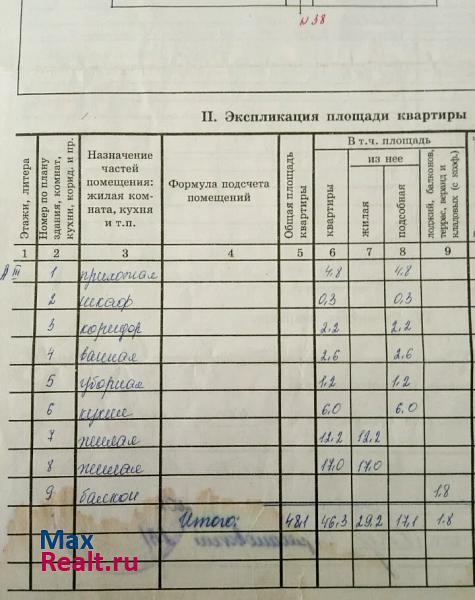 N 38
II. Экспликация площади квартиры
Этажи, литера
Номер по плану здания, комнат, кухни, корид. и пр.
Назначение частей помещения: жилая ком- ната, кухня и т.п.
Формула подсчета помещений
Общая площадь квартиры
В т.ч. площадь
квартиры
из нее
жилая
подсобная
лоджий, балконов, террас, веранд и кладовых (с коэф.)
1 2 3 4 5 6 7 8 9
А III 1 прихожая 4,8 4,8
2 шкаф 0,3 0,3
3 коридор 2,2 2,2
4 ванная 2,6 2,6
5 уборная 1,2 1,2
6 кухня 6,0 6,0
7 жилая 12,2 12,2
8 жилая 17,0 17,0
9 балкон 1,8
Итого: 48,1 46,3 29,2 17,1 1,8
Max
Realt.ru